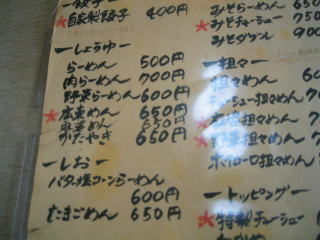 一餃子一
自家製餃子 400円
一しょうゆ一
らーめん 500円
肉らーめん 700円
野菜らーめん 600円
広東めん 650円
麻婆めん 650
かたやき 650
一しお一
バター塩コーンらーめん
600円
たまごめん 650円
みそらーめん 650
みそチャーシュー 750
みそダブル 900
一担々一
担々めん
チャーシュー担々めん
担々めん
野菜担々めん
担々めん
一トッピング一
特製チャーシュー
わかめ